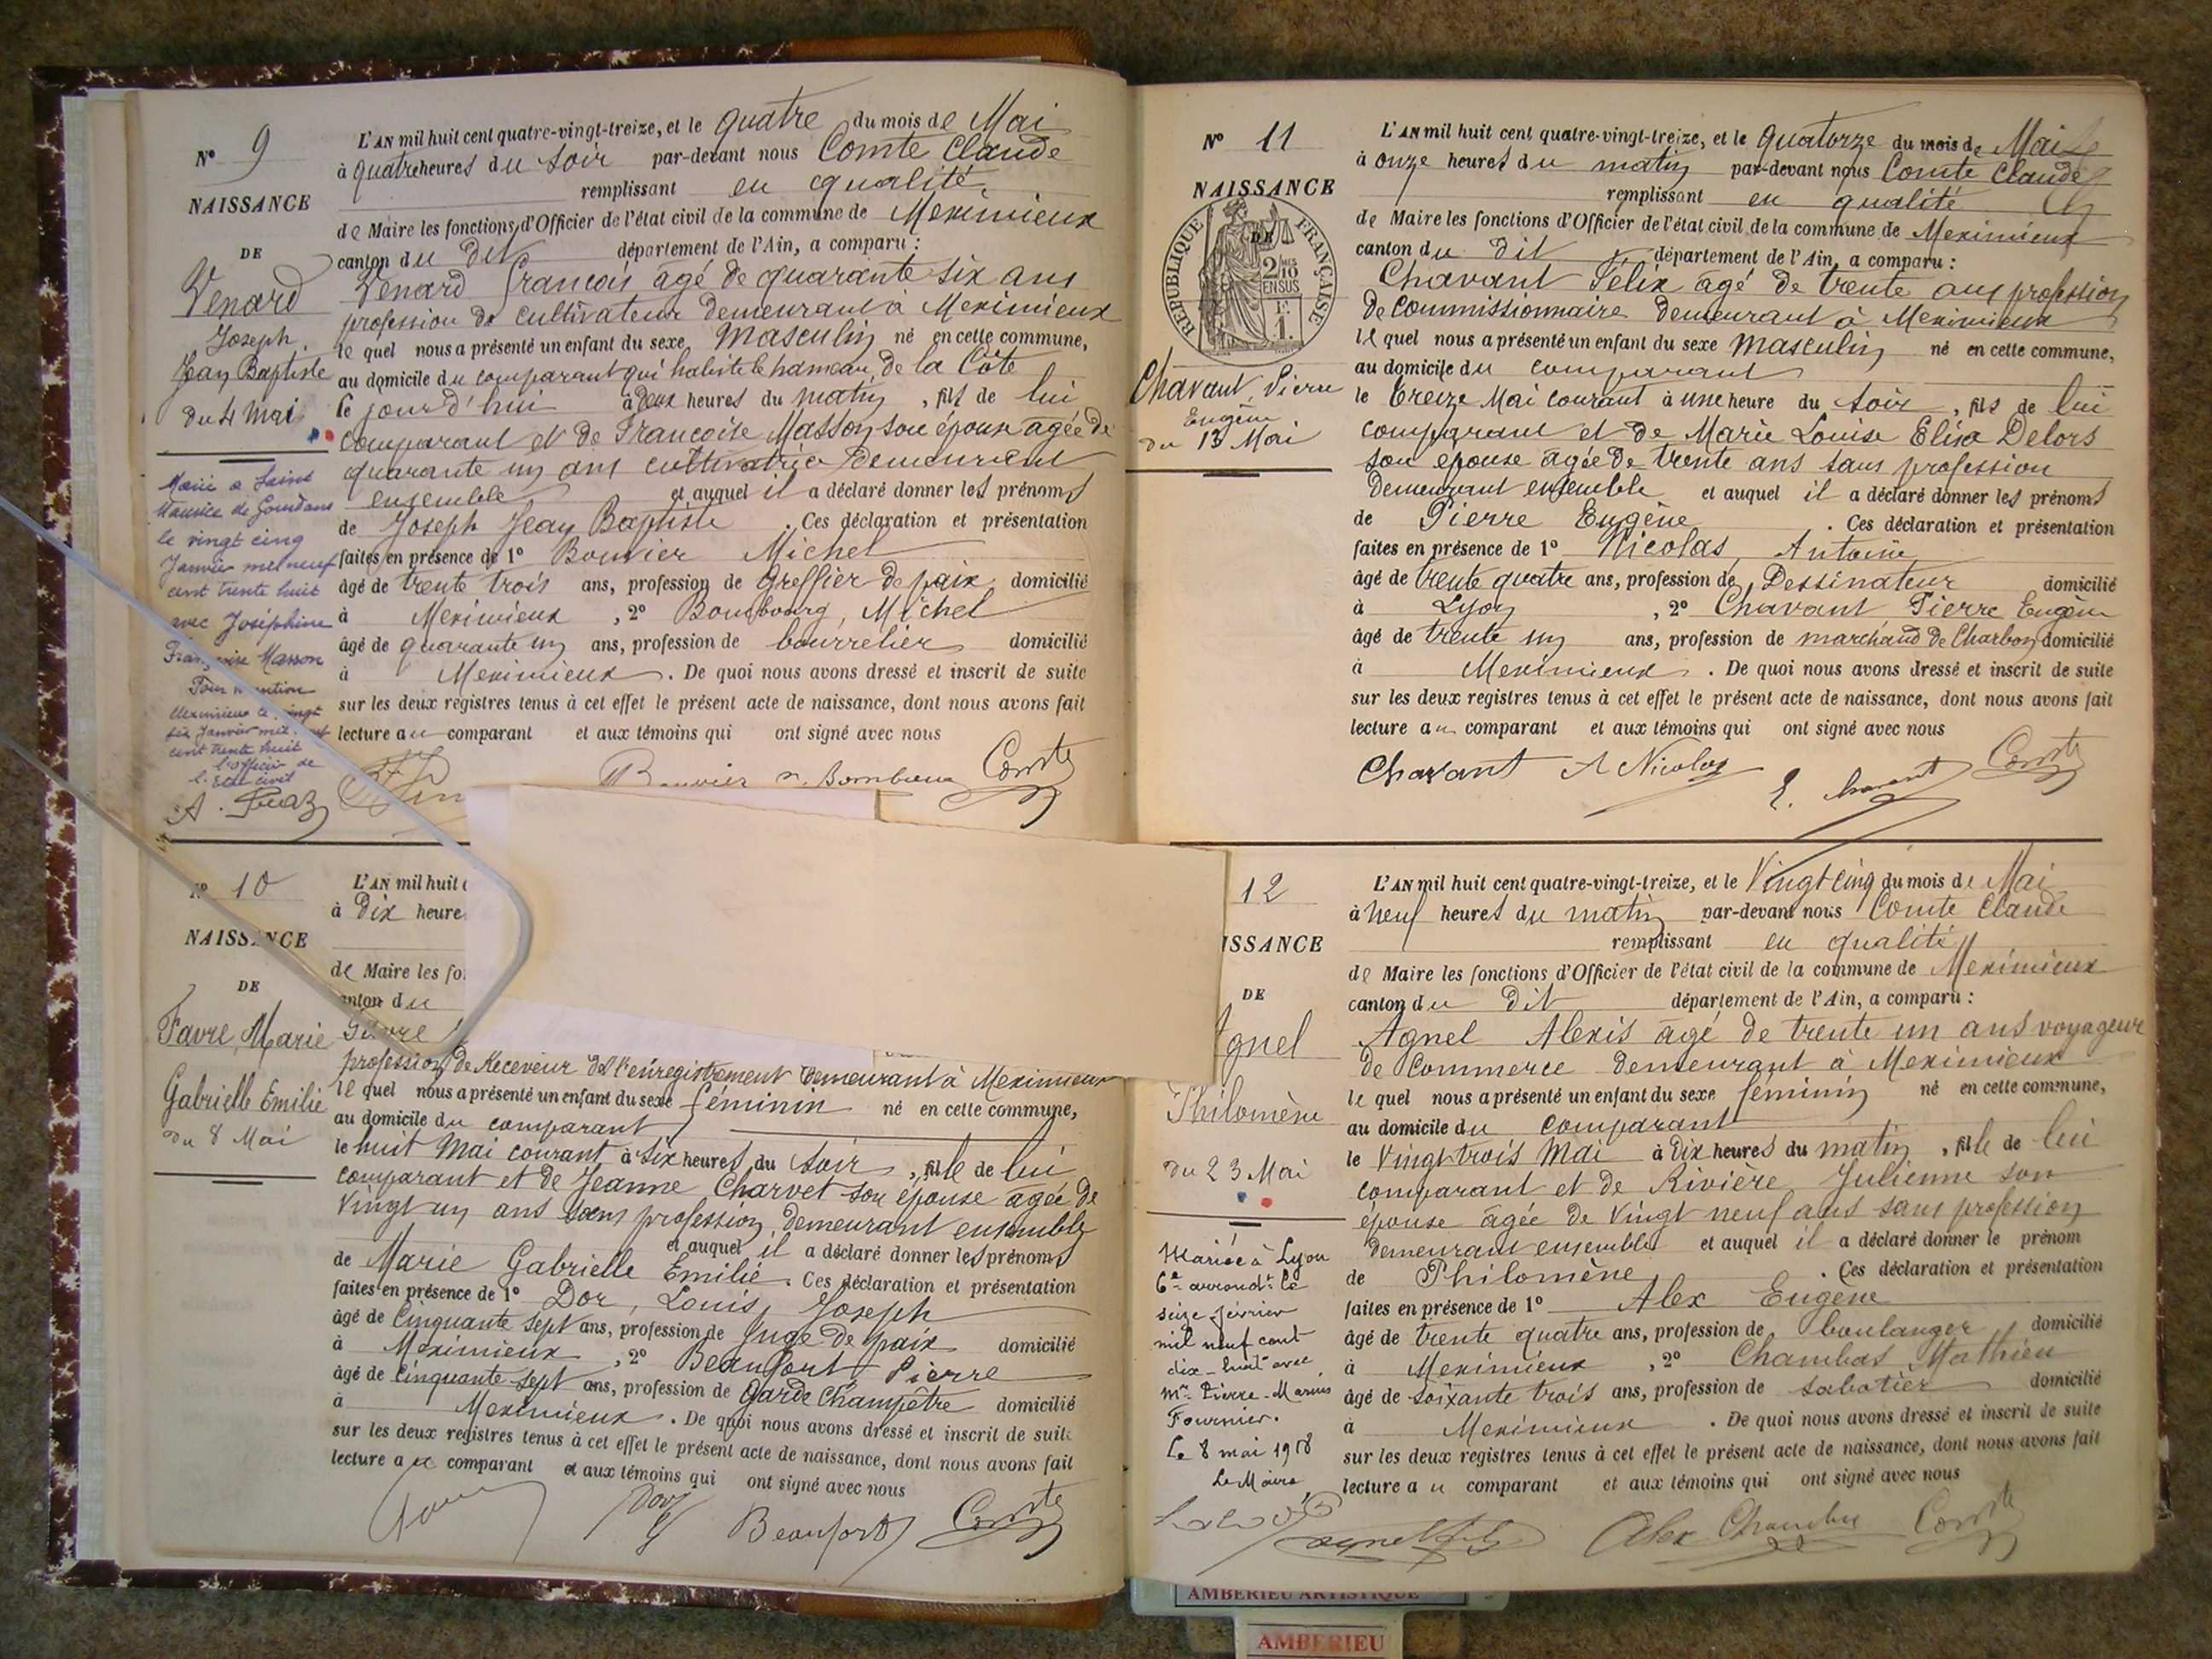 N° 9
NAISSANCE
DE
Venard
Joseph,
Jean Baptiste
du 4 Mai
Marié à Saint
Maurice de Gourdans
le vingt cinq
Janvier mil neuf
cent trente huit
avec Joséphine
Françoise Masson
Pour mention
Meximieux le vingt
six Janvier mil neuf
cent trente huit
l'officier de
l'Etat civil
L'AN mil huit cent quatre-vingt-treize, et le quatre du mois de Mai
à quatre heures du soir par-devant nous Comte Claude
remplissant en qualité
de Maire les fonctions d'Officier de l'état civil de la commune de Meximieux
canton du dit département de l'Ain, a comparu :
Venard François agé de quarante six ans
profession de cultivateur demeurant à Meximieux
le quel nous a présenté un enfant du sexe Masculin né en cette commune,
au domicile du comparant qui habite le hameau de la Côte
le jour d'hui à deux heures du matin, fils de lui
comparant et de Françoise Masson son épouse agée de
quarante un ans cultivatrice demeurant
ensemble et auquel il a déclaré donner les prénoms
de Joseph Jean Baptiste. Ces déclaration et présentation
faites en présence de 1° Bouvier Michel
âgé de trente trois ans, profession de Greffier de paix domicilié
à Meximieux, 2° Bombourg, Michel
âgé de quarante un ans, profession de bourrelier domicilié
à Meximieux. De quoi nous avons dressé et inscrit de suite
sur les deux registres tenus à cet effet le présent acte de naissance, dont nous avons fait
lecture au comparant et aux témoins qui ont signé avec nous
Bouvier Comte
N° 10
NAISSANCE
DE
Favre, Marie
Gabrielle Emilie
du 8 Mai
L'AN mil huit
à Dix heure
de Maire les fo
canton du
profession de Receveur de l'enregistrement demeurant à Meximieux
le quel nous a présenté un enfant du sexe féminin né en cette commune,
au domicile du comparant
le huit Mai courant à six heures du soir, fille de lui
comparant et de Jeanne Charvet son épouse agée de
vingt un ans sans profession demeurant ensemble
et auquel il a déclaré donner les prénoms
de Marie Gabrielle Emilie. Ces déclaration et présentation
faites en présence de 1° Dor, Louis, Joseph
âgé de Cinquante sept ans, profession de Juge de paix domicilié
à Meximieux, 2° Beaufort Pierre
âgé de Cinquante sept ans, profession de Garde Champêtre domicilié
à Meximieux. De quoi nous avons dressé et inscrit de suite
sur les deux registres tenus à cet effet le présent acte de naissance, dont nous avons fait
lecture au comparant et aux témoins qui ont signé avec nous
Dor Beaufort Comte
N° 11
NAISSANCE
DE
RÉPUBLIQUE FRANÇAISE
2/10 EN SUS
Chavant, Pierre
Eugène
du 13 Mai
L'AN mil huit cent quatre-vingt-treize, et le quatorze du mois de Mai
à onze heures du matin par-devant nous Comte Claude
remplissant en qualité
de Maire les fonctions d'Officier de l'état civil de la commune de Meximieux
canton du dit département de l'Ain, a comparu :
Chavant Félix agé de trente ans profession
de commissionnaire demeurant à Meximieux
le quel nous a présenté un enfant du sexe masculin né en cette commune,
au domicile du comparant
le treize Mai courant à une heure du soir, fils de lui
comparant et de Marie Louise Elisa Delors
son épouse agée de trente ans sans profession
demeurant ensemble et auquel il a déclaré donner les prénoms
de Pierre Eugène. Ces déclaration et présentation
faites en présence de 1° Nicolas, Antoine
âgé de trente quatre ans, profession de Dessinateur domicilié
à Lyon, 2° Chavant Pierre Eugène
âgé de trente un ans, profession de marchand de Charbon domicilié
à Meximieux. De quoi nous avons dressé et inscrit de suite
sur les deux registres tenus à cet effet le présent acte de naissance, dont nous avons fait
lecture au comparant et aux témoins qui ont signé avec nous
Chavant A Nicolas E. Chavant Comte
12
ISSANCE
DE
Agnel
Philomène
du 23 Mai
Mariée à Lyon
6e arrondt le
seize février
mil neuf cent
dix-huit avec
Mr Pierre-Marius
Fournier.
Le 8 mai 1918
Le Maire,
L'AN mil huit cent quatre-vingt-treize, et le Vingt cinq du mois de Mai
à neuf heures du matin par-devant nous Comte Claude
remplissant en qualité
de Maire les fonctions d'Officier de l'état civil de la commune de Meximieux
canton du dit département de l'Ain, a comparu :
Agnel Alexis agé de trente un ans voyageur
de commerce demeurant à Meximieux
le quel nous a présenté un enfant du sexe féminin né en cette commune,
au domicile du comparant
le Vingt trois Mai à dix heures du matin, fille de lui
comparant et de Rivière, Julienne son
épouse agée de vingt neuf ans sans profession
demeurant ensemble et auquel il a déclaré donner le prénom
de Philomène. Ces déclaration et présentation
faites en présence de 1° Alex Eugène
âgé de trente quatre ans, profession de boulanger domicilié
à Meximieux, 2° Chambas Mathieu
âgé de soixante trois ans, profession de sabotier domicilié
à Meximieux. De quoi nous avons dressé et inscrit de suite
sur les deux registres tenus à cet effet le présent acte de naissance, dont nous avons fait
lecture au comparant et aux témoins qui ont signé avec nous
Alex Comte
AMBERIEU ARTISTIQUE
AMBERIEU